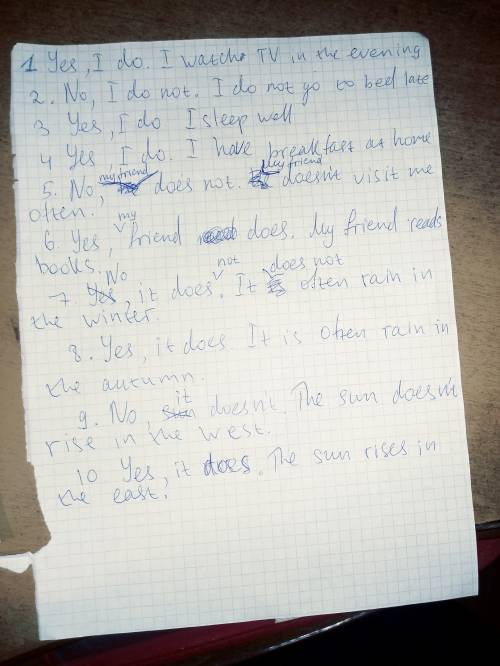 1 Yes, I do. I watch TV in the evening
2. No, I do not. I do not go to bed late
3 Yes, I do I sleep well
4 Yes, I do. I have breakfast at home
5. No, my friend does not. My friend doesn't visit me
often.
6. Yes, my friend does. My friend reads
books.
7. No, it does not. It does not often rain in
the winter.
8. Yes, it does. It is often rain in
the autumn.
9. No, it doesn't. The sun doesn't
rise in the west.
10 Yes, it does. The sun rises in
the east.